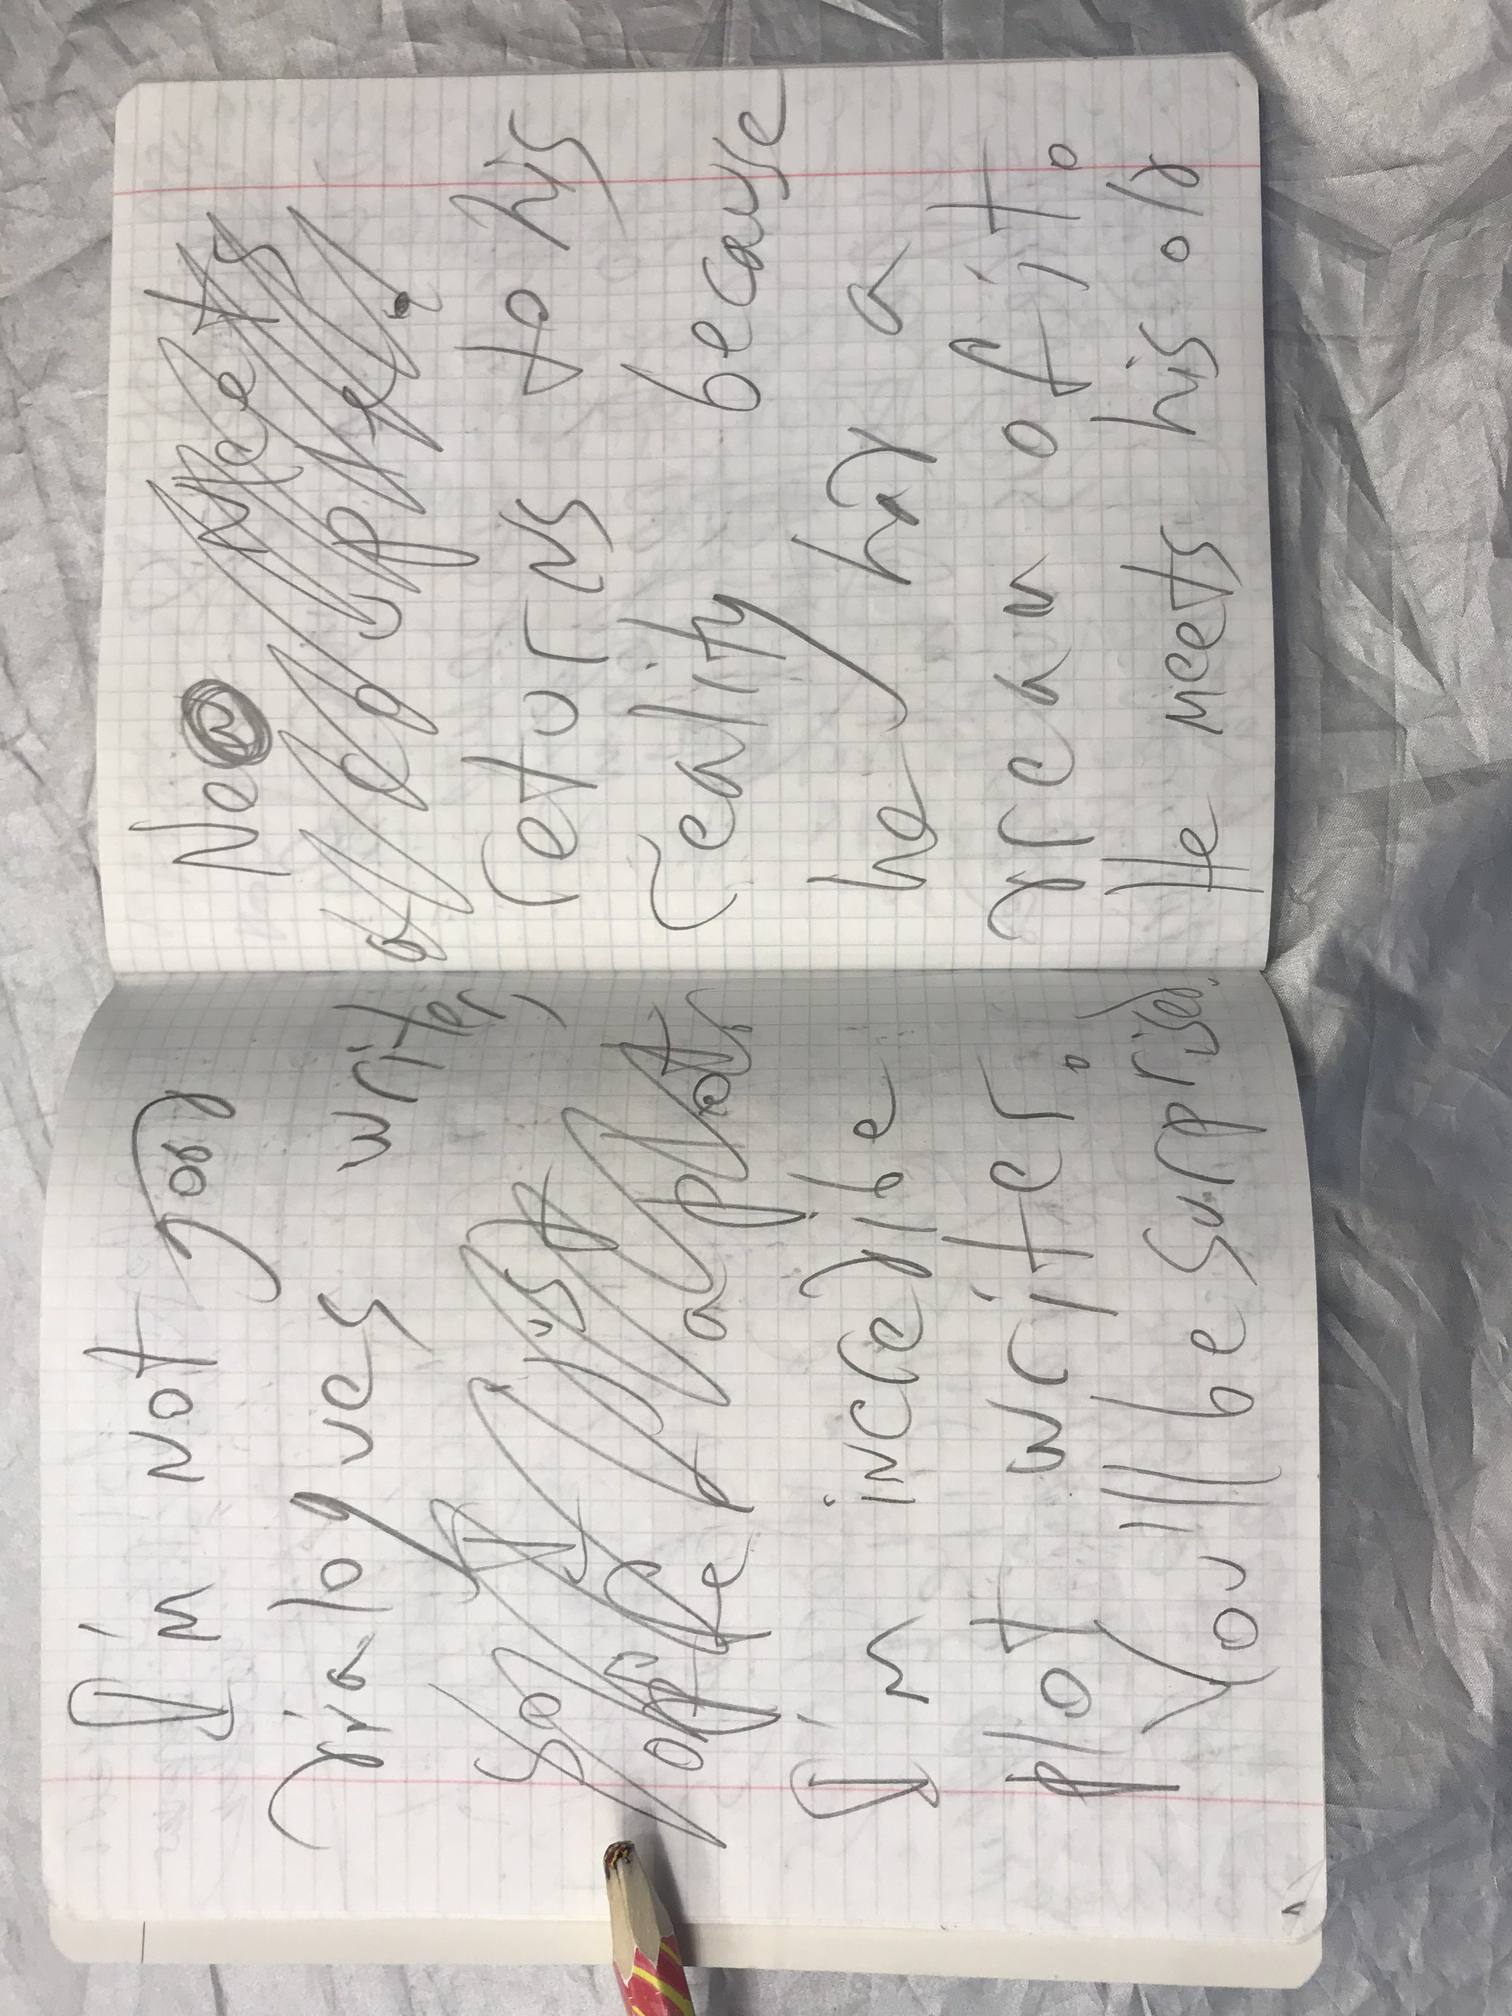 I'm not good
dialogues writer,
I'm incredible
plot writer.
You'll be surprised.
Neo
returns to his
reality because
he had a
dream of it.
He meets his old